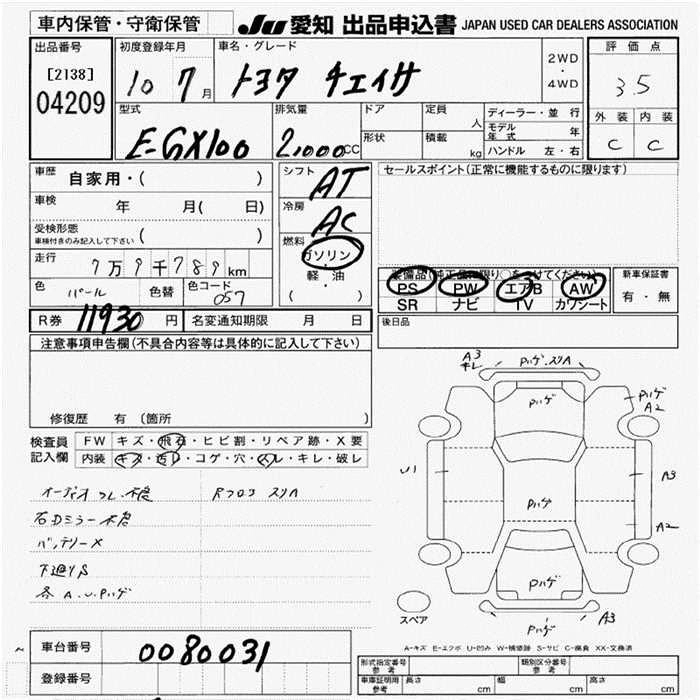 車内保管・守衛保管
JU 愛知 出品申込書 JAPAN USED CAR DEALERS ASSOCIATION
出品番号
[2138]
04209
初度登録年月
10 7月
車名・グレード
トヨタ チェイサ
2WD
・
4WD
評価点
3.5
外装 内装
C C
型式
E-GX100
排気量
2,000CC
ドア
形状
定員 人
積載 kg
ディーラー・並行
モデル年式 年
ハンドル 左・右
車歴 自家用・( )
車検 年 月( 日)
受検形態
車検付きのみ記入して下さい ( )
走行 9万9千789km
色 パール 色替 色コード 057
R券 11930円 名変通知期限 月 日
シフト AT
冷房 AC
燃料
ガソリン
・
軽・油
( )
セールスポイント(正常に機能するものに限ります)
装備品(純正品に限り○をつけてください)
PS PW エアB AW
SR ナビ TV カワシート
新車保証書
有・無
後日品
注意事項申告欄(不具合内容等は具体的に記入して下さい)
修復歴 有 〔箇所 〕
検査員
記入欄
FW キズ・飛石・ヒビ割・リペア跡・X要
内装 キズ・汚レ・コゲ・穴・スレ・キレ・破レ
オーディオ コレ・不良 Rフロア スリA
右Dミラー不良
バッテリーX
下廻りS
各A.U.Pハゲ
A3
キレ
Pハゲ.スリA
Pハゲ
Pハゲ
A2
U1
Pハゲ
A3
A2
Pハゲ
Pハゲ
A3
スペア
A-キズ E-エクボ U-凹み W-補修跡 S-サビ C-腐食 XX-交換済
車台番号 0080031
登録番号
形式指定番号
参考
類別区分番号
参考
車庫証明用
参考
長さ cm 幅 cm 高さ cm